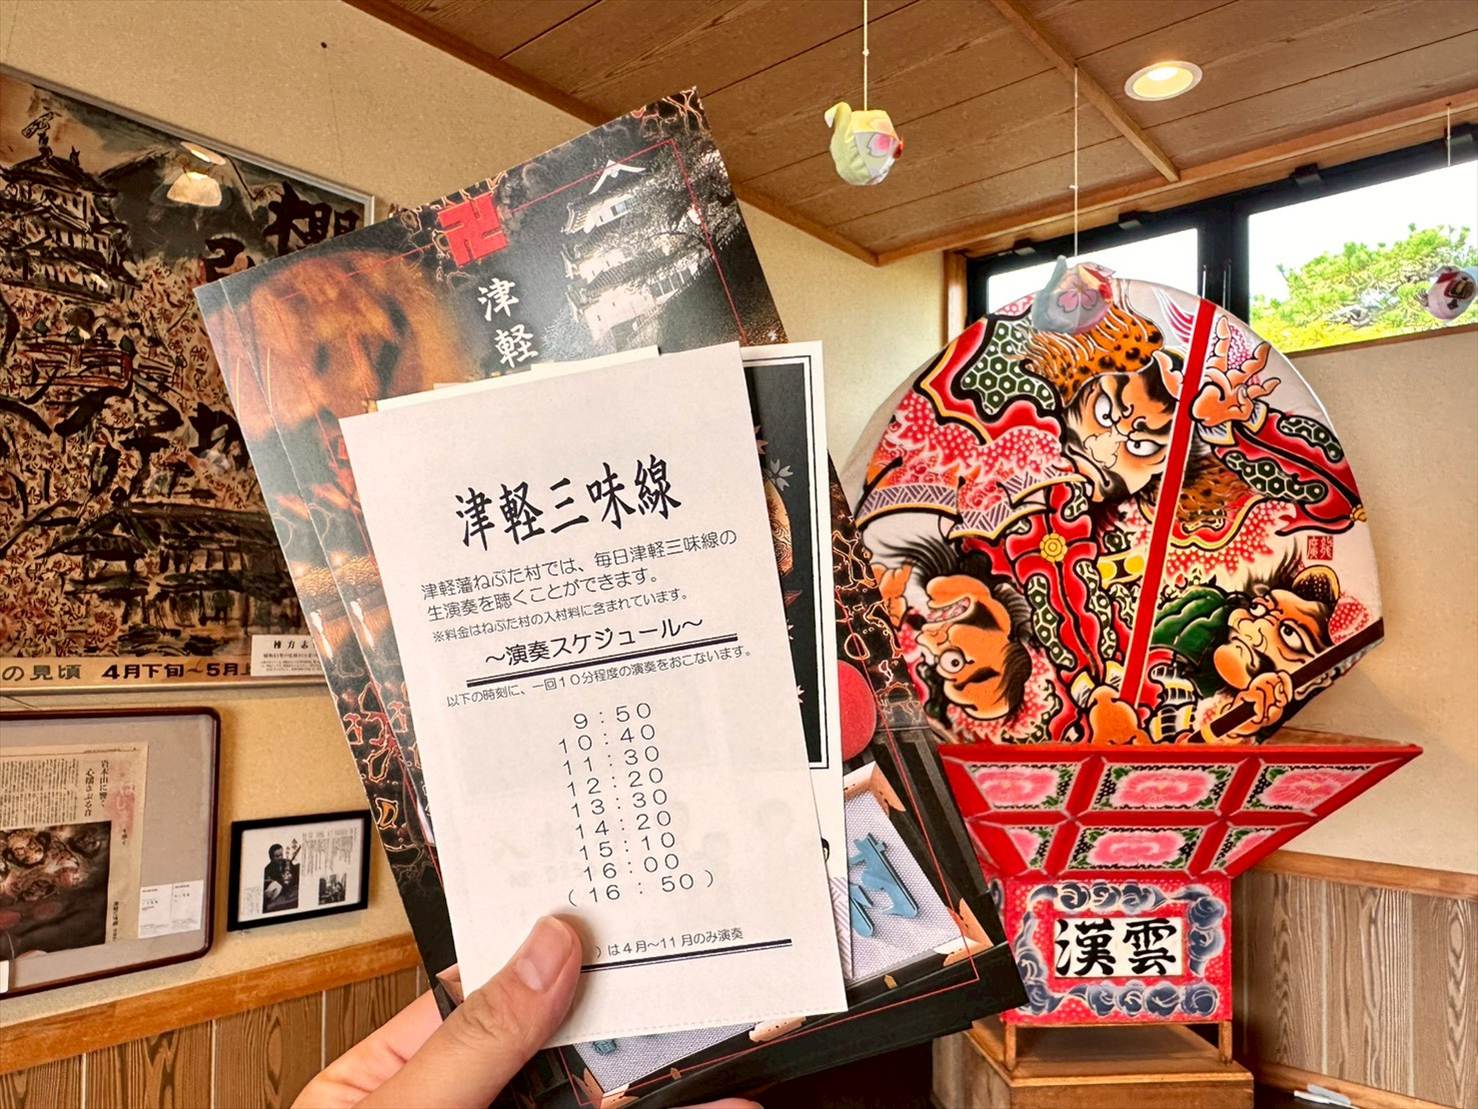 櫻
津軽
津軽三味線
津軽藩ねぷた村では、毎日津軽三味線の
生演奏を聴くことができます。
※料金はねぷた村の入村料に含まれています。
～演奏スケジュール～
以下の時刻に、一回１０分程度の演奏をおこないます。
９：５０
１０：４０
１１：３０
１２：２０
１３：３０
１４：２０
１５：１０
１６：００
（１６：５０）
）は４月～１１月のみ演奏
の見頃 4月下旬～5月上
棟方志
岩木山に響く
心揺さぶる音
漢雲